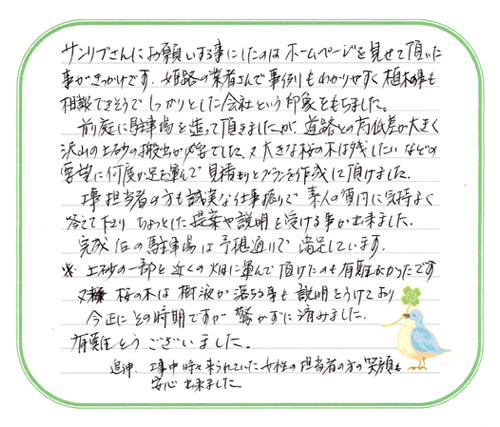 サンリブさんにお願いする事にしたのはホームページを見せて頂いた
事がきっかけです。姫路の業者さんで事例もわかりやすく植木の事も
相談できそうでしっかりとした会社という印象をもちました。
前庭に駐車場を造って頂きましたが、道路との高低差が大きく
沢山の土砂の搬出が必要でした。又大きな桜の木は残したいなどの
要望に何度か足を運んで見積りとプランを作成して頂けました。
工事担当者の方も誠実な仕事振りで素人の質問に気持よく
答えて下さり ちょっとした提案や説明を受ける事が出来ました。
完成后の駐車場は予想通りで満足しています。
※ 土砂の一部を近くの畑に運んで頂けたのも有難たかったです
又 桜の木は樹液が落ちる事も説明をうけており
今正にその時期ですが驚かずに済みました。
有難とうございました。
追伸、工事中時々来られていた女性の担当者の方の笑顔も
安心出来ました